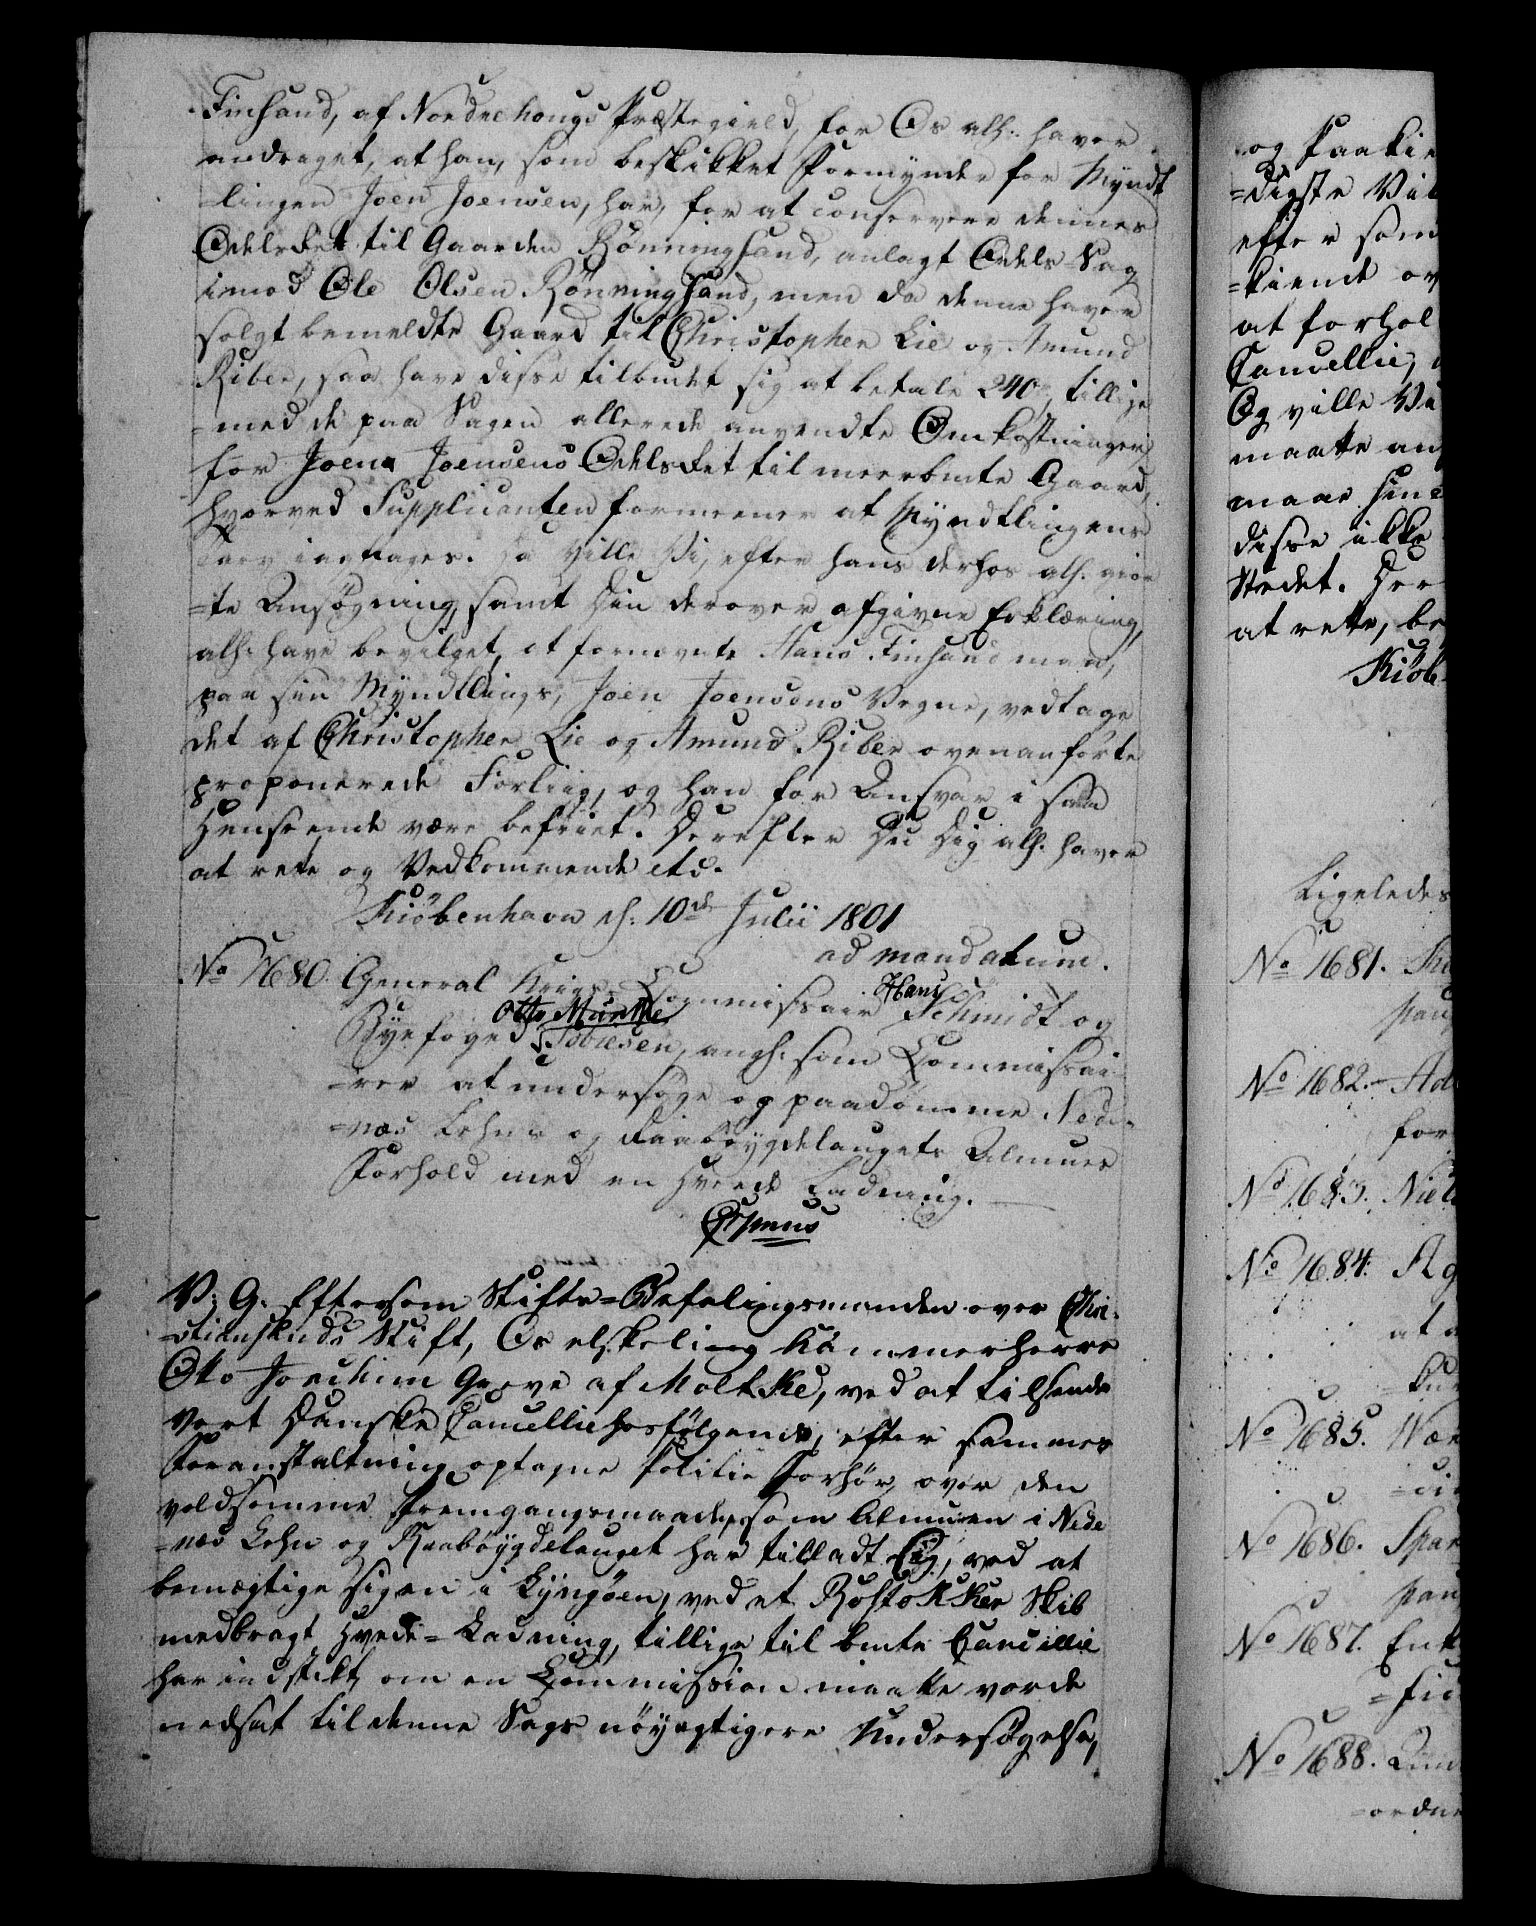 Finsand, af Nordrehougs Præstegield, for Os alh. haver
andraget, at han, som beskikket Formynder for Mynd-
-lingen Joen Joensen, har, for at conservere dennes
Odelsret til Gaarden Rønningsand, anlagt Odels-Sag
imod Ole Olsen Rønningsand, men da denne haver
solgt bemeldte Gaard til Christopher Lie og Amund
Riber, saa have disse tilbudet sig at betale 240 rd, tillige
-med de paa Sagen allerede anvendte Omkostninger
for Joen Joensens Odelsret til meerbmte Gaard,
hvorved Supplicanten formeener at Myndtlingens
Tarv iagttages. Da ville Vi, efter hans derfor alh. gior-
=te Ansøgning, samt Din derover afgivne Erklæring,
alh. have bevilget, at fornevnte Hans Finsand maa,
paa sin Myndtlings, Joen Joensens Vegne, vedtage
det af Christopher Lie og Amund Riber ovenanførte
proponerede Forliig, og han for Ansvar i saa
Henseende være befriet. Derefter Du Dig alh. haver
at rette og Vedkommende etc.
Kiöbenhavn d. 10de Julii 1801
ad mandatum.
No 1680. General Krigs-Commissair Hans Schmidt og
Byefoged Otto Munthe Tobiesen, angh. som Commissai-
-rer at undersøge og paadømme Nede-
=næs Lehns og Raabøygdelaugets Almues
Forhold med en Hvede Ladning.
Expens
V. G. Eftersom Stifts=Befalingsmanden over Chri-
-stiansands Stift, Os elskelig Kammerherre
Otto Joachim Greve af Moltke, ved at tilsende
vort Danske Cancellie hosfølgende, efter sammes
Foranstaltning optagne Politie Forhør, over den
voldsomme Fremgangsmaade, som Almuen i Nede
=næs Lehn og Raabøygdelauget har tilladt sig, ved at
bemægtige sig en i Lyngøen, ved et Rostokker Skib
medbragt Hvede=Ladning, tillige til bmte Cancellie
har indstilt, om en Commission maatte vorde
nedsat til denne Sags nøyagtigere Undersøgelse,
og Paakie
=digste Vil
efter som
=kiende ov
at forhol
Cancellie,
Og ville Vi
maatte an
maae hen
disse ikke
Stedet. Der
at rette, be
Kiöb-
Ligeledes
No 1681.
No 1682.
for
No 1683. Niel
No 1684.
at
No 1685.
No 1686.
No 1687. Enk
No 1688.